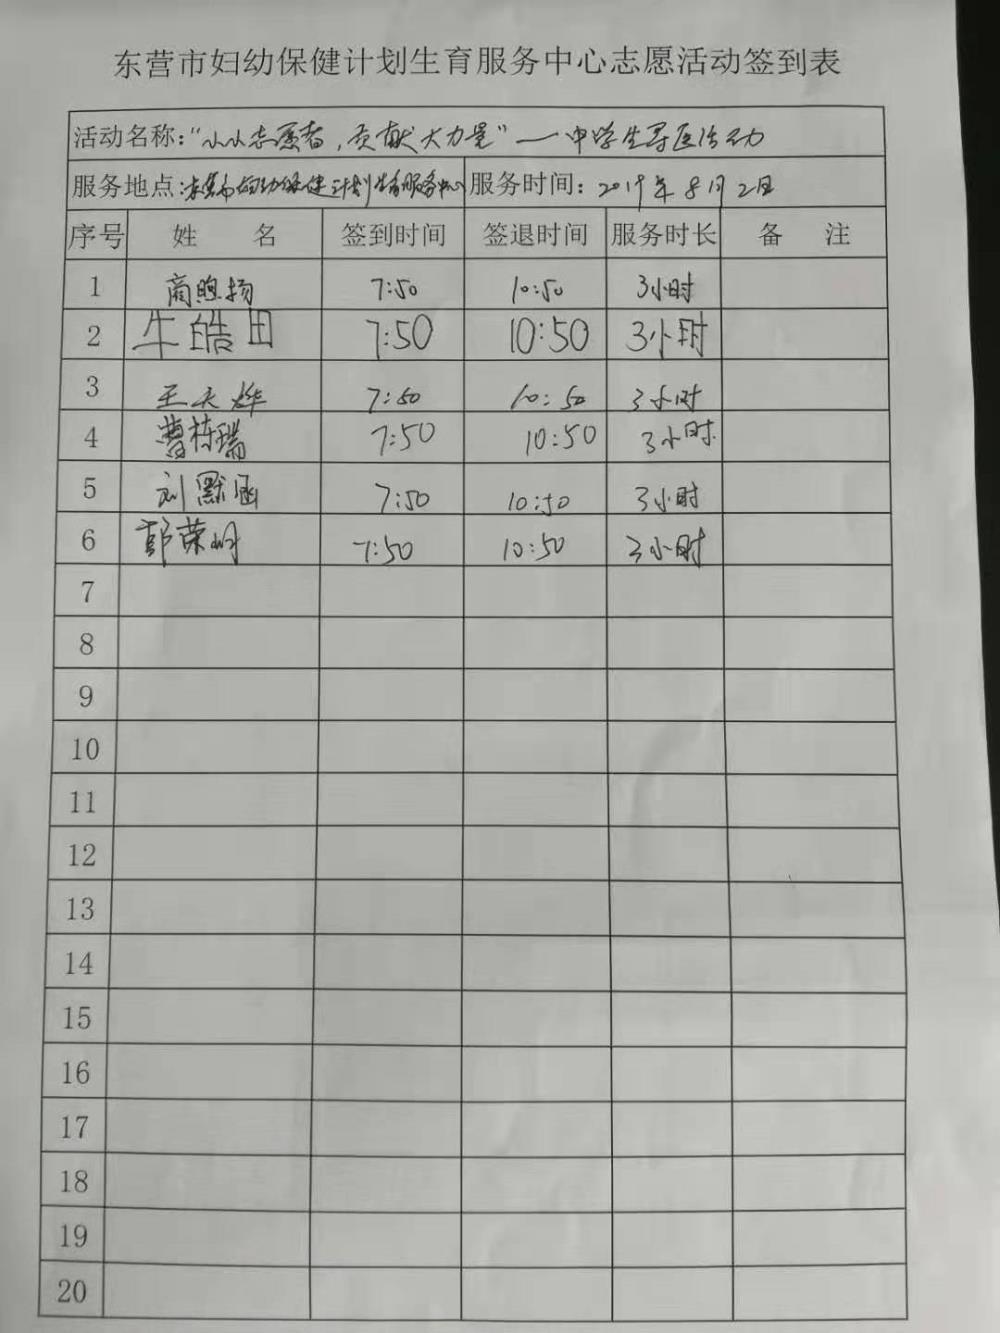 东营市妇幼保健计划生育服务中心志愿活动签到表
活动名称：“小小志愿者，贡献大力量”—中学生导医活动
服务地点：东营市妇幼保健计划生育服务中心 服务时间：2019年8月2日
序号 姓 名 签到时间 签退时间 服务时长 备 注
1 商煦扬 7:50 10:50 3小时
2 牛皓田 7:50 10:50 3小时
3 王天烨 7:50 10:50 3小时
4 曹栋瑞 7:50 10:50 3小时
5 刘默涵 7:50 10:50 3小时
6 彭荣 7:50 10:50 3小时
7
8
9
10
11
12
13
14
15
16
17
18
19
20